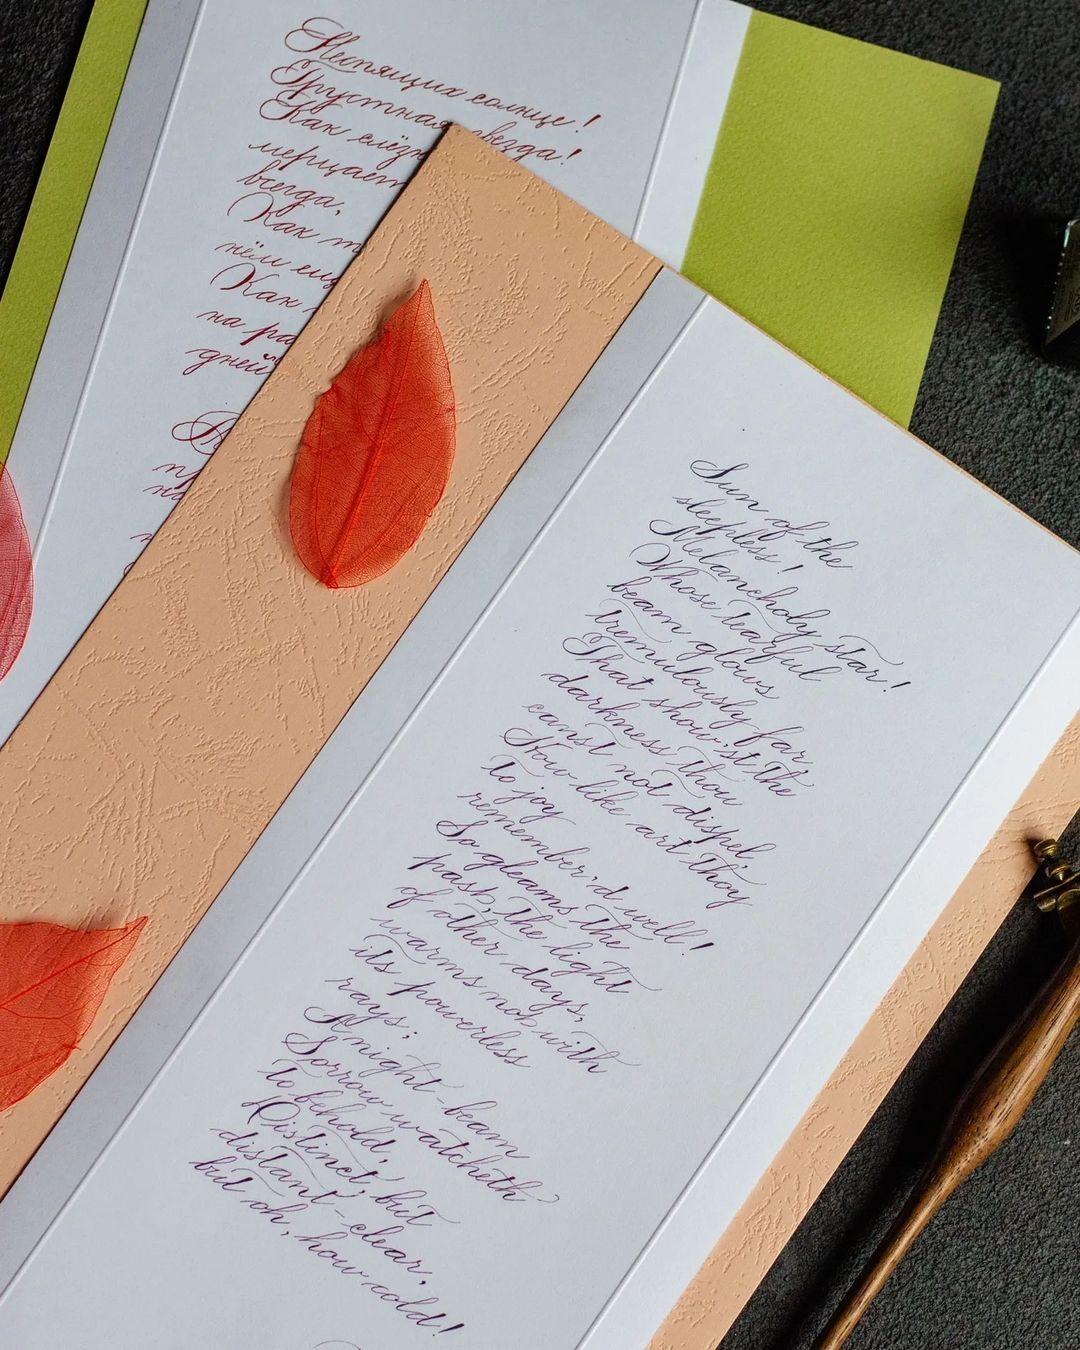 Неспящих солнце!
Грустная звезда!
Как слёзн
мерцает
всегда,
Как т
нём ещ
Как
на ра
дней
Sun of the
sleepless!
Melancholy star!
Whose tearful
beam glows
tremulously far,
That show'st the
darkness thou
canst not dispel,
How like art thoy
to joy
remember'd well!
So gleams the
past, the light
of other days,
warms not with
its powerless
rays;
A night-beam
Sorrow watcheth
to behold,
Distinct, but
distant-clear,
but oh, how cold!